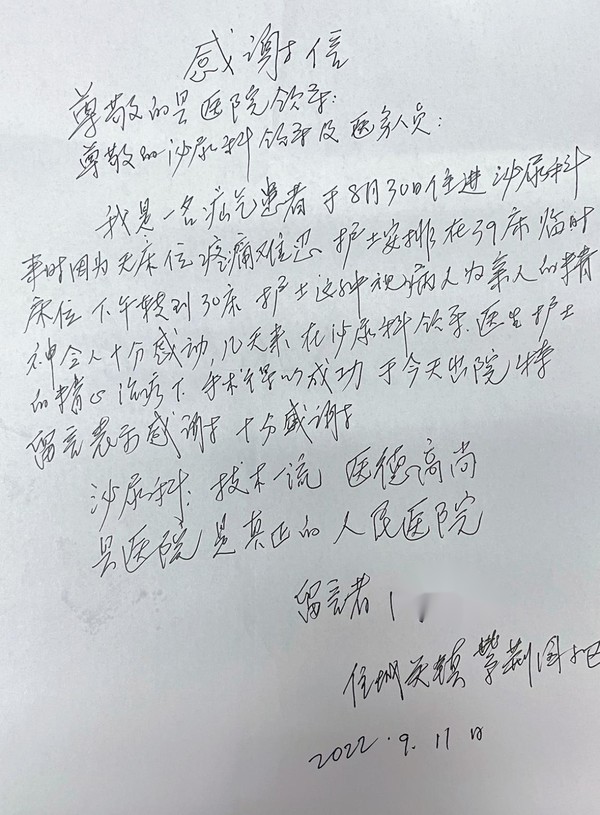 感谢信
尊敬的县医院领导：
尊敬的泌尿科领导及医务人员：
我是一名疝气患者于8月30日住进泌尿科
来时因为无床位疼痛难忍 护士安排在39床临时
床位 下午转到30床 护士这种视病人为亲人的精
神令人十分感动，几天来 在泌尿科领导 医生护士
的精心治疗下 手术得以成功 于今天出院 特
留言表示感谢 十分感谢
泌尿科：技术一流 医德高尚
县医院是真正的人民医院
留言者
住城关镇紫荆
2022.9.11日